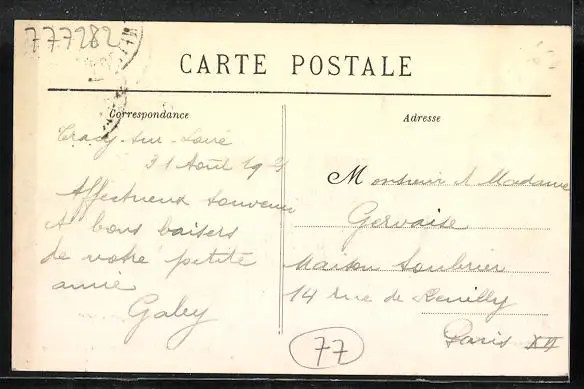 777282
CARTE POSTALE
Correspondance
Adresse
Tracy-sur-Loire
31 Août 19
Affectueux souvenir
et bons baisers
de votre petite
amie
Gaby
Monsieur et Madame
Gervaise
Maison Soubrier
14 rue de Reuilly
Paris XII
77